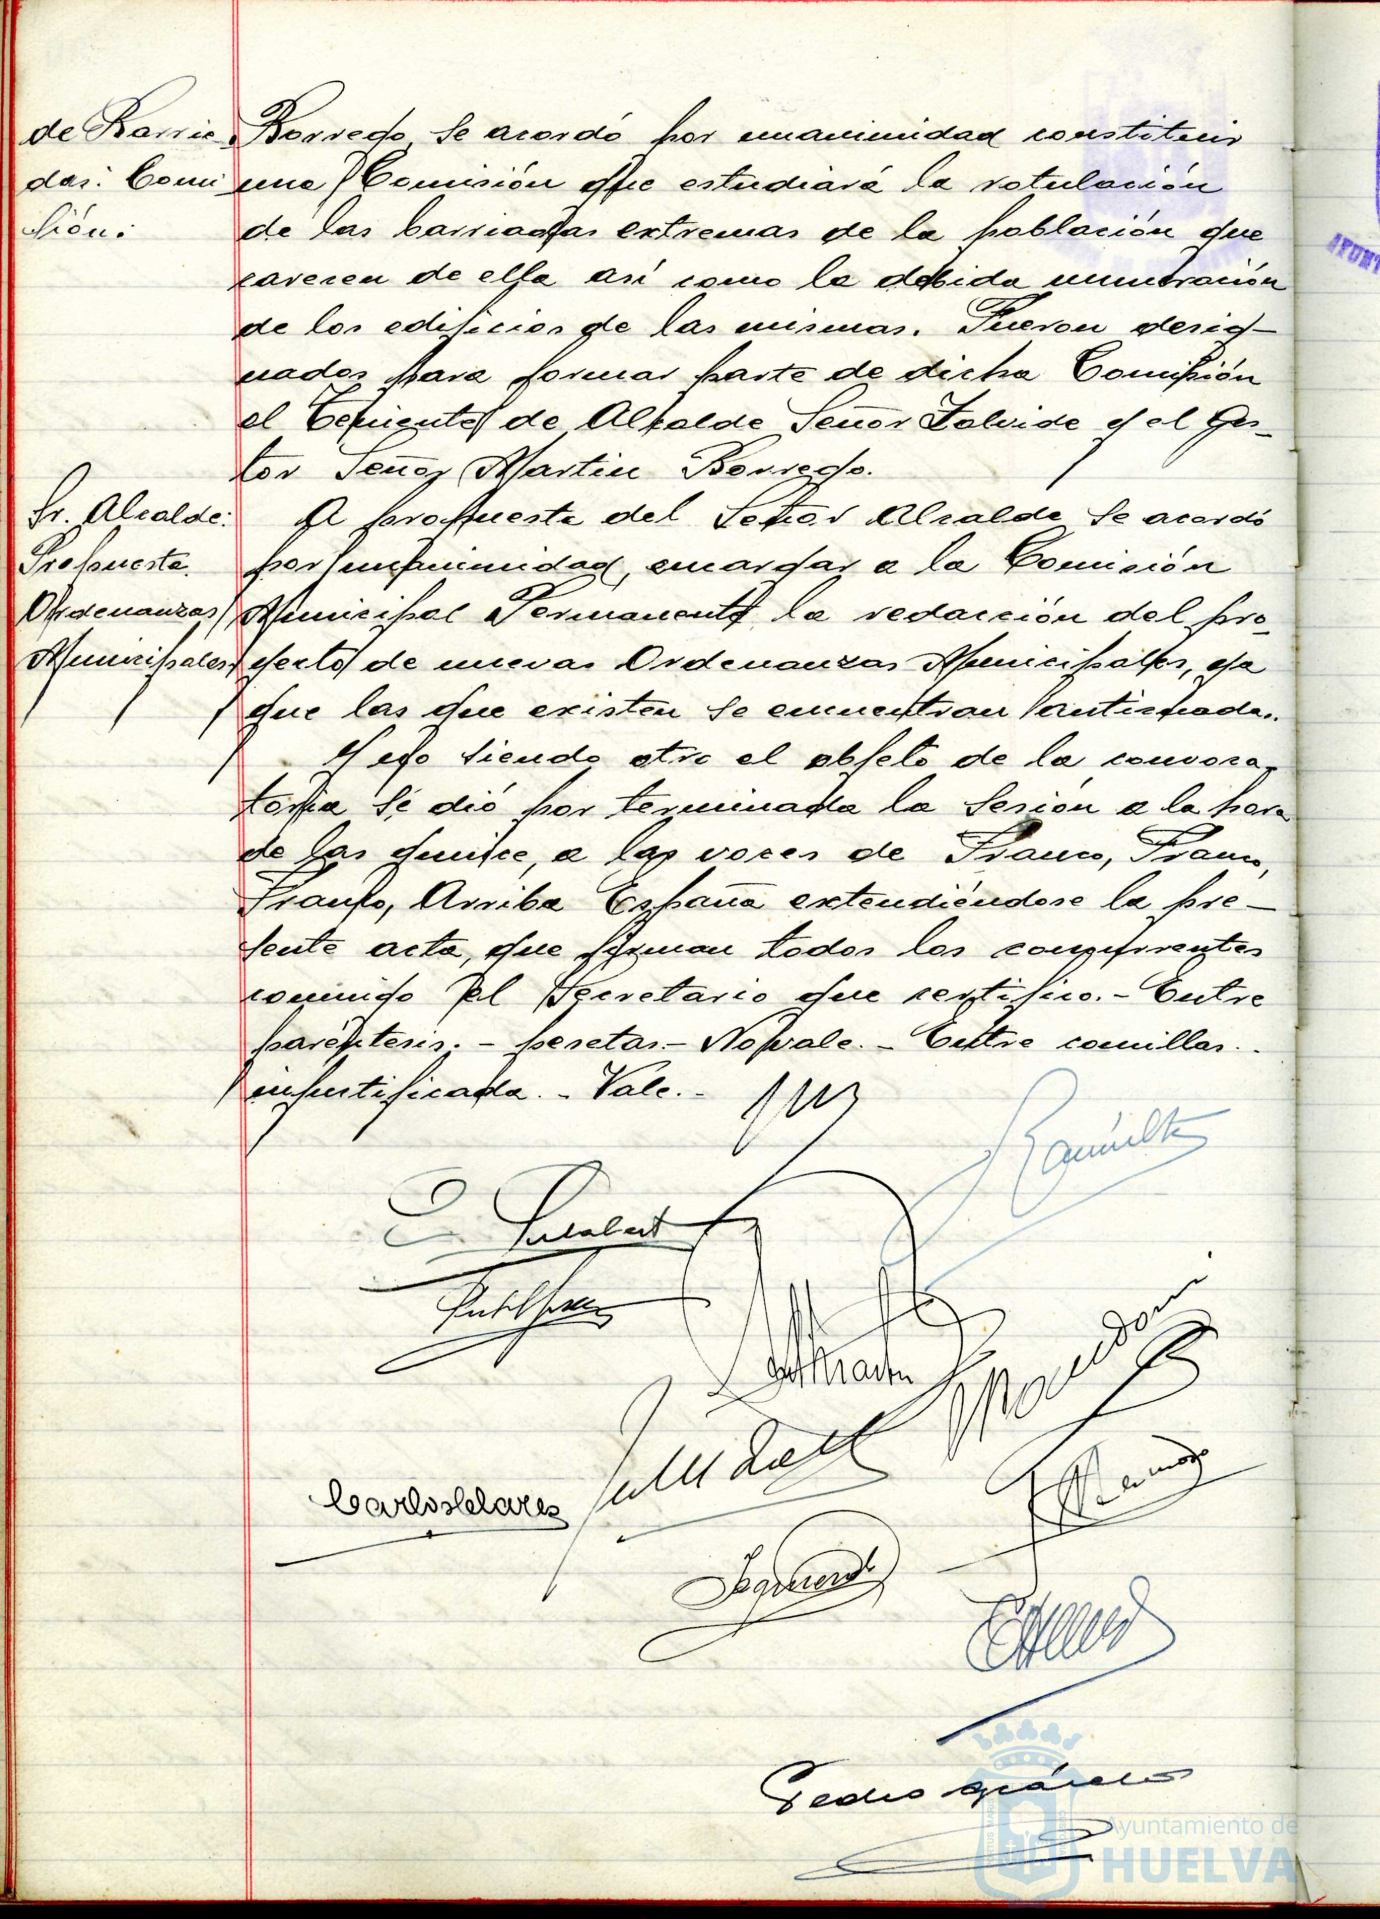 de Barria
das: Comi
sión:
Borrego se acordó por unanimidad constituir
una Comisión que estudiará la rotulación
de las barriadas extremas de la población que
carecen de ella así como la debida numeración
de los edificios de las mismas. Fueron desig-
nados para formar parte de dicha Comisión
el Teniente de Alcalde Señor Salvide y el Ges-
tor Señor Martin Borrego.
Sr. Alcalde:
Propuesta.
Ordenanzas
Municipales
A propuesta del Señor Alcalde se acordó
por unanimidad, encargar a la Comisión
Municipal Permanente la redacción del pro-
yecto de nuevas Ordenanzas Municipales, ya
que las que existen se encuentran anticuadas.
Y no siendo otro el objeto de la convoca-
toria se dió por terminada la sesión a la hora
de las quince, a las voces de Franco, Franco,
Franco, Arriba España extendiéndose la pre-
sente acta, que firman todos los concurrentes
conmigo el Secretario que certifico.- Entre
paréntesis.- pesetas.- No vale.- Entre comillas.-
injustificada.- Vale.-
Carlos
Izquierdo
Pedro
Ayuntamiento de
HUELVA